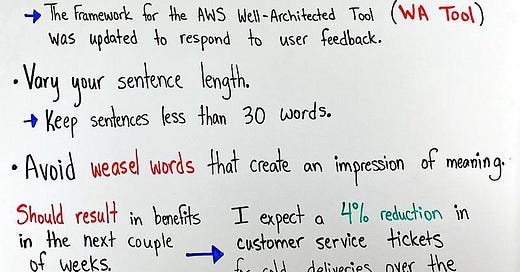 → The Framework for the AWS Well-Architected Tool (WA Tool)
was updated to respond to user feedback.
• Vary your sentence length.
→ Keep sentences less than 30 words.
• Avoid weasel words that create an impression of meaning.
Should result in benefits
in the next couple
of weeks.
→
I expect a 4% reduction in
customer service tickets
deliveries over the